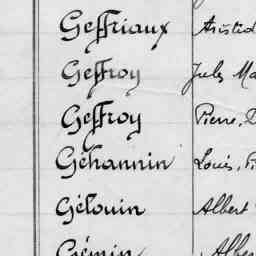 Geffriaux Aristid
Geffroy Jules Ma
Geffroy Pierre,
Géhannin Louis,
Gélouin Albert
Gémin Albe